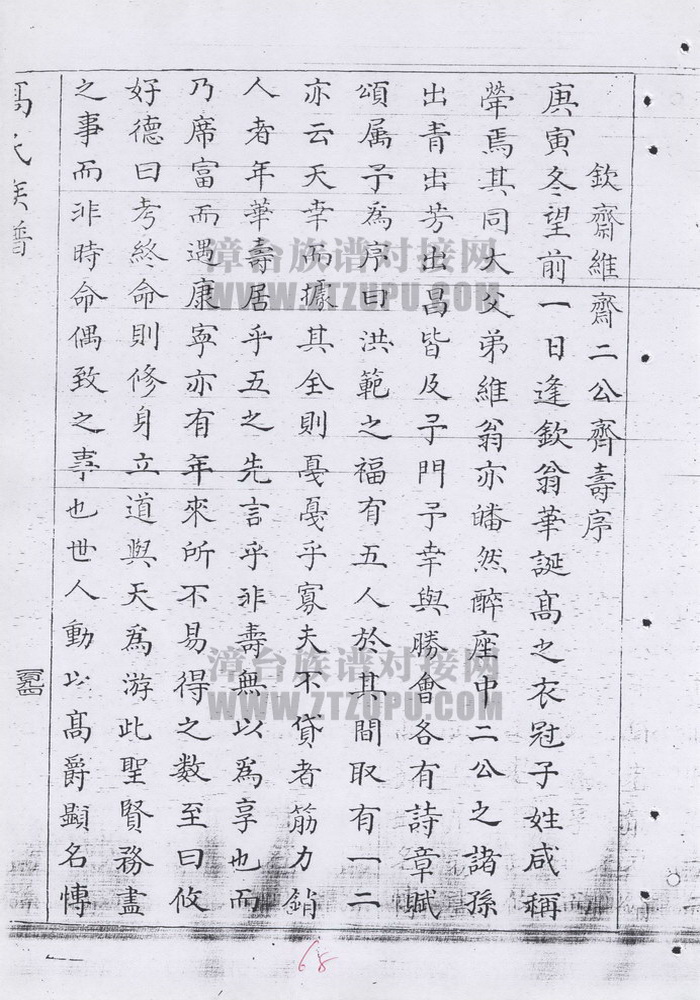 欽齋維齋二公齊壽序
庚寅冬望前一日逢欽翁華誕髙之衣冠子姓咸稱
犖焉其同大父弟維翁亦皤然醉座中二公之諸孫
出青出芳出昌皆及予門予幸與勝會各有詩章賦
頌属予爲序曰洪範之福有五人於其間取有一二
亦云天幸而據其全則戞戞乎寡夫不貸者筋力銷
人者年華壽居乎五之先言乎非壽無以爲享也而
乃席富而遇康寧亦有年來所不易得之數至曰攸
好德曰考終命則修身立道與天爲游此聖賢務盡
之事而非時命偶致之事也世人動以髙爵顯名愽
髙氏族譜
六十八
68
漳台族谱对接网
WWW.ZTZUPU.COM
漳台族谱对接网
WWW.ZTZUPU.COM